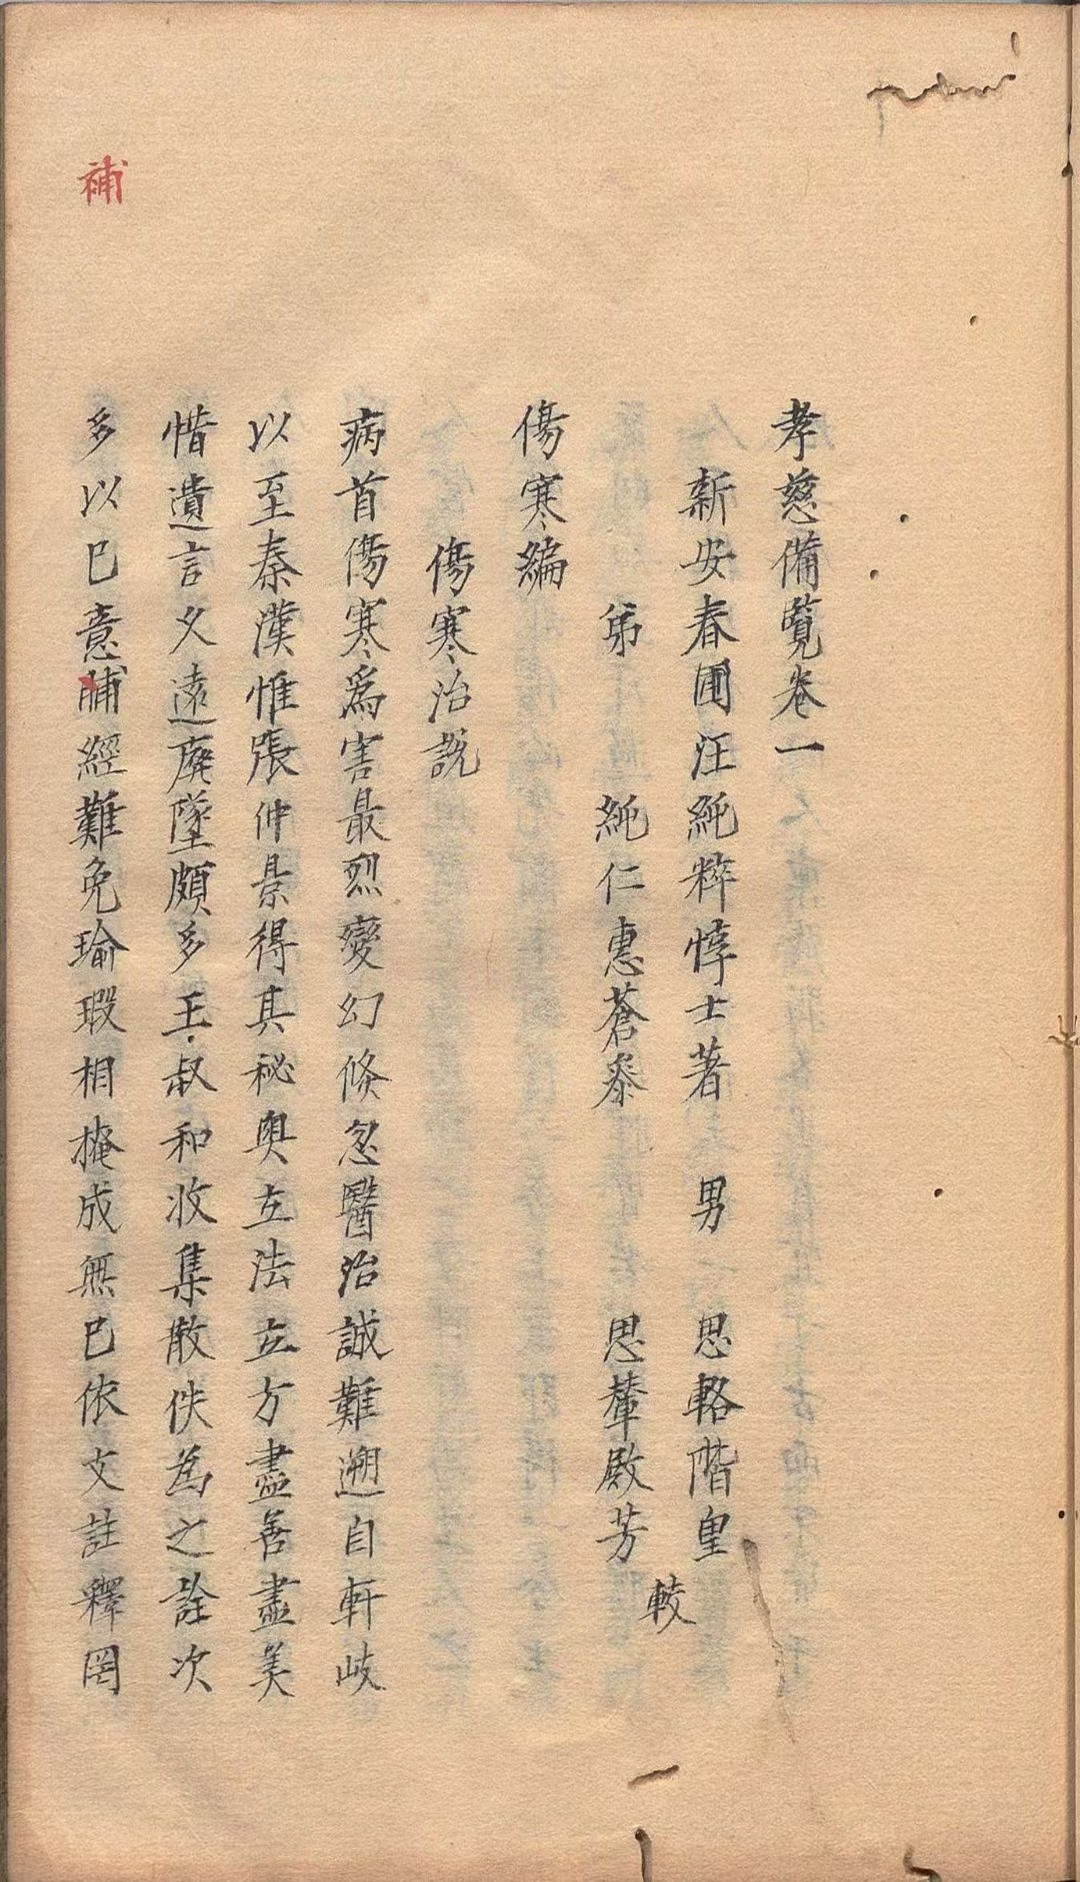 孝慈備覽卷一
新安春圃汪純粹惇士著　男　思輅階皇
弟　純仁惠蒼叅　思輦殿芳
較
傷寒編
傷寒治說
病首傷寒爲害最烈變幻倏忽醫治誠難遡自軒岐
以至秦漢惟張仲景得其秘奥立法立方盡善盡美
惜遺言久遠廢墜頗多王叔和收集散佚為之詮次
多以巳意脯經難免瑜瑕相掩成無巳依文註釋罔
補